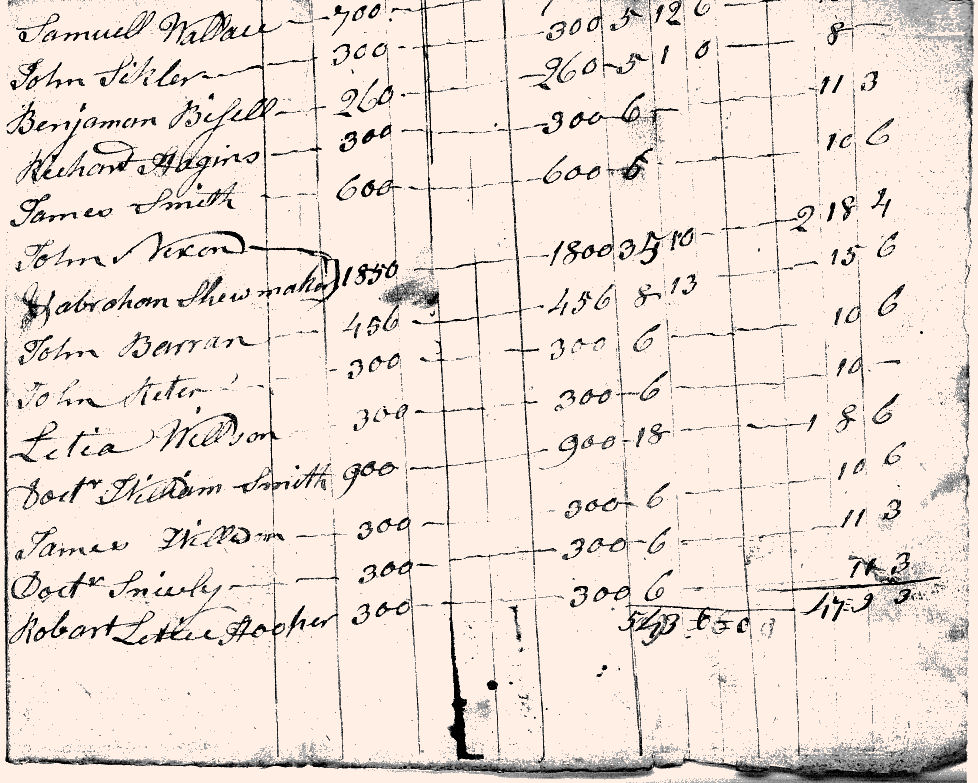 Samuell Wallace 700
John Sikler 300 300 5 12 6
Benjaman Bisell 260 260 5 1 0 8
Richard Hagins 300 300 6 11 3
James Smith 600 600 6 10 6
John Nixon
Habraham Shewmaker 1850 1800 35 10 2 18 4
John Barran 456 456 8 13 15 6
John Keter 300 300 6 10 6
Letia Willson 300 300 6 10
Doctr William Smith 900 900 18 1 8 6
James Willson 300 300 6 10 6
Doctr Snively 300 300 6 11 3
Robart Hooher 300 300 6 11 3
543 47 9 3